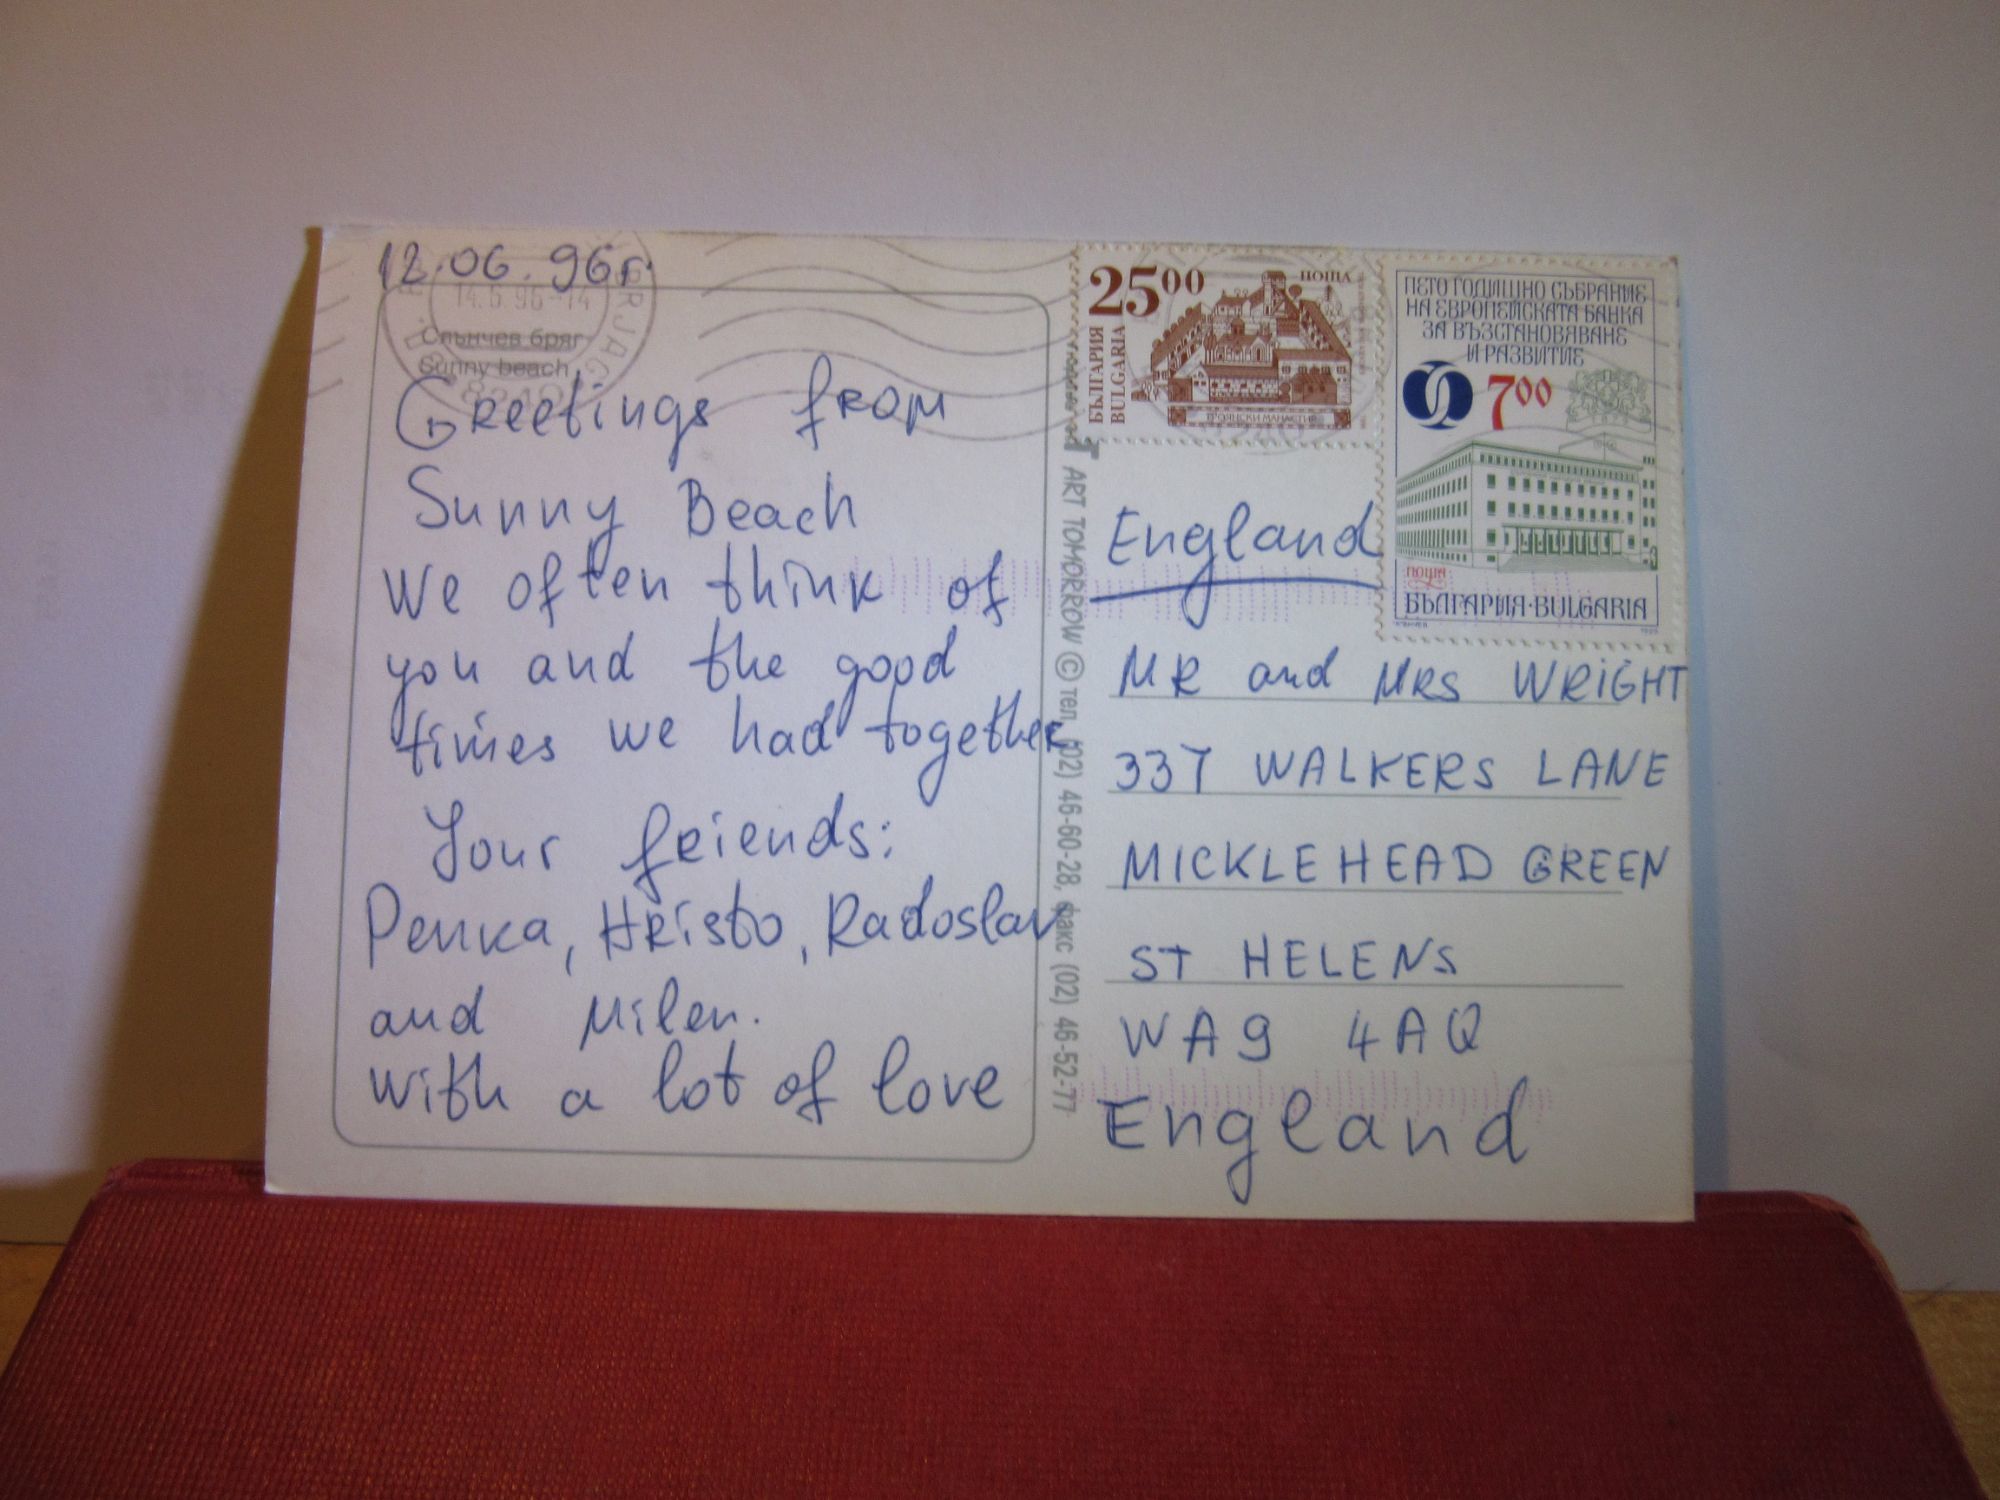 12.06.96г.
14.6.96-14
Слънчев бряг
Sunny beach
Greetings from
Sunny Beach
We often think of
you and the good
times we had together
Your friends:
Penka, Hristo, Radoslav
and Milen.
with a lot of love
ART TOMORROW © тел. (02) 46-60-28, факс (02) 46-52-77
25 00
ПОЩА
БЪЛГАРИЯ
BULGARIA
ТРОЯНСКИ МАНАСТИР
ПЕТО ГОДИШНО СЪБРАНИЕ
НА ЕВРОПЕЙСКАТА БАНКА
ЗА ВЪЗСТАНОВЯВАНЕ
И РАЗВИТИЕ
7 00
ПОЩА
БЪЛГАРИЯ·BULGARIA
England
MR and MRS WRIGHT
337 WALKERS LANE
MICKLEHEAD GREEN
ST HELENS
WA9 4AQ
England